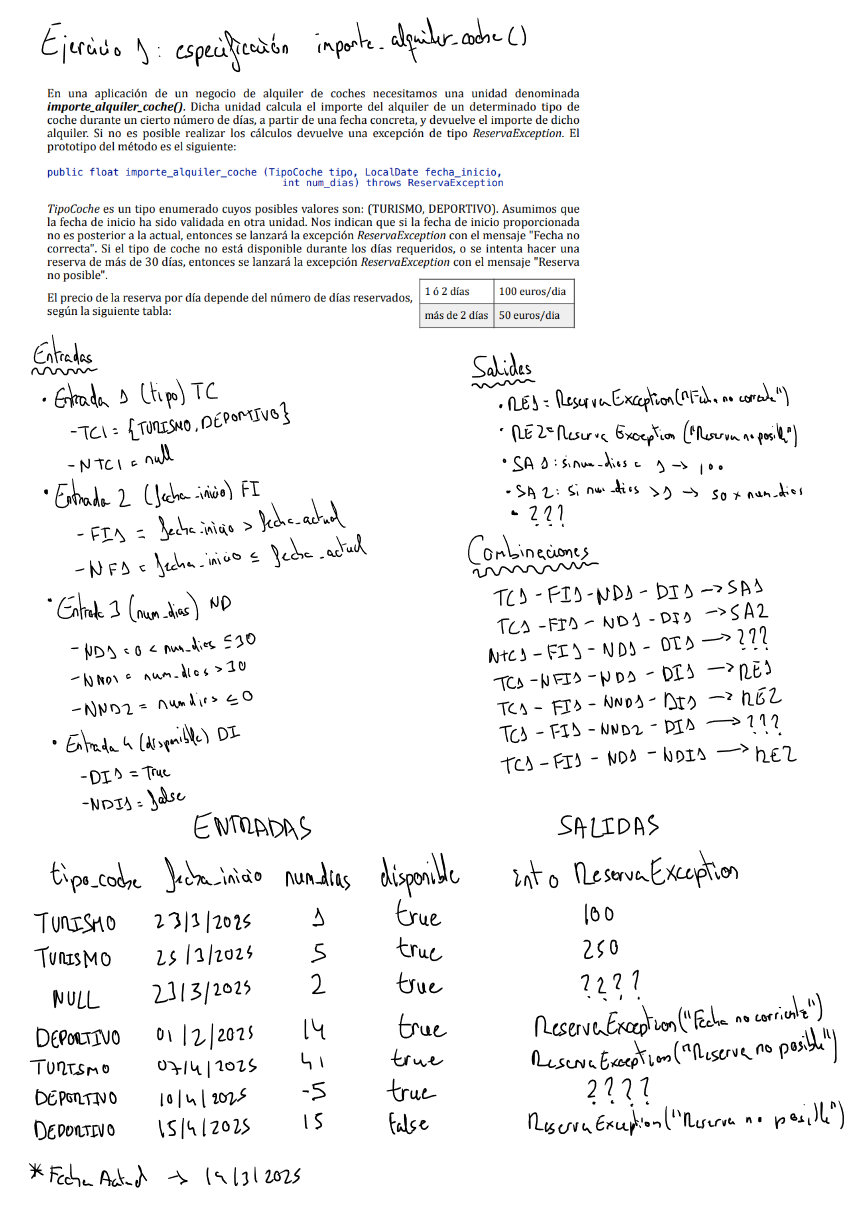 Ejercicio 1: especificación importe_alquiler_coche()
En una aplicación de un negocio de alquiler de coches necesitamos una unidad denominada
importe_alquiler_coche(). Dicha unidad calcula el importe del alquiler de un determinado tipo de
coche durante un cierto número de días, a partir de una fecha concreta, y devuelve el importe de dicho
alquiler. Si no es posible realizar los cálculos devuelve una excepción de tipo ReservaException. El
prototipo del método es el siguiente:
public float importe_alquiler_coche (TipoCoche tipo, LocalDate fecha_inicio,
int num_dias) throws ReservaException
TipoCoche es un tipo enumerado cuyos posibles valores son: (TURISMO, DEPORTIVO). Asumimos que
la fecha de inicio ha sido validada en otra unidad. Nos indican que si la fecha de inicio proporcionada
no es posterior a la actual, entonces se lanzará la excepción ReservaException con el mensaje "Fecha no
correcta". Si el tipo de coche no está disponible durante los días requeridos, o se intenta hacer una
reserva de más de 30 días, entonces se lanzará la excepción ReservaException con el mensaje "Reserva
no posible".
El precio de la reserva por día depende del número de días reservados,
según la siguiente tabla:
1 ó 2 días 100 euros/dia
más de 2 días 50 euros/dia
Entradas
• Entrada 1 (tipo) TC
- TC1 = {TURISMO, DEPORTIVO}
- NTC1 = null
• Entrada 2 (fecha_inicio) FI
- FI1 = fecha_inicio > fecha_actual
- NF1 = fecha_inicio ≤ fecha_actual
• Entrada 3 (num_dias) ND
- ND1 = 0 < num_dias ≤ 30
- NND1 = num_dias > 30
- NND2 = num dias ≤ 0
• Entrada 4 (disponible) DI
- DI1 = True
- NDI1 = false
Salidas
• RE1 = ReservaException("Fecha no correcta")
• RE2 = Reserva Exception ("Reserva no posible")
• SA1: si num_dias = 1 → 100
• SA2: Si num_dias > 1 → 50 x num_dias
• ???
Combinaciones
TC1 - FI1 - ND1 - DI1 → SA1
TC1 - FI1 - ND1 - DI1 → SA2
NTC1 - FI1 - ND1 - DI1 → ???
TC1 - NFI1 - ND1 - DI1 → RE1
TC1 - FI1 - NND1 - DI1 → RE2
TC1 - FI1 - NND2 - DI1 → ???
TC1 - FI1 - ND1 - NDI1 → RE2
ENTRADAS SALIDAS
tipo_coche fecha_inicio num_dias disponible int o ReservaException
TURISMO 23/3/2025 1 true 100
TURISMO 25/3/2025 5 true 250
NULL 23/3/2025 2 true ????
DEPORTIVO 01/2/2025 14 true ReservaException("Fecha no corriente")
TURISMO 07/4/2025 41 true ReservaException("Reserva no posible")
DEPORTIVO 10/4/2025 -5 true ????
DEPORTIVO 15/4/2025 15 false ReservaException("Reserva no posible")
* Fecha Actual → 19/3/2025